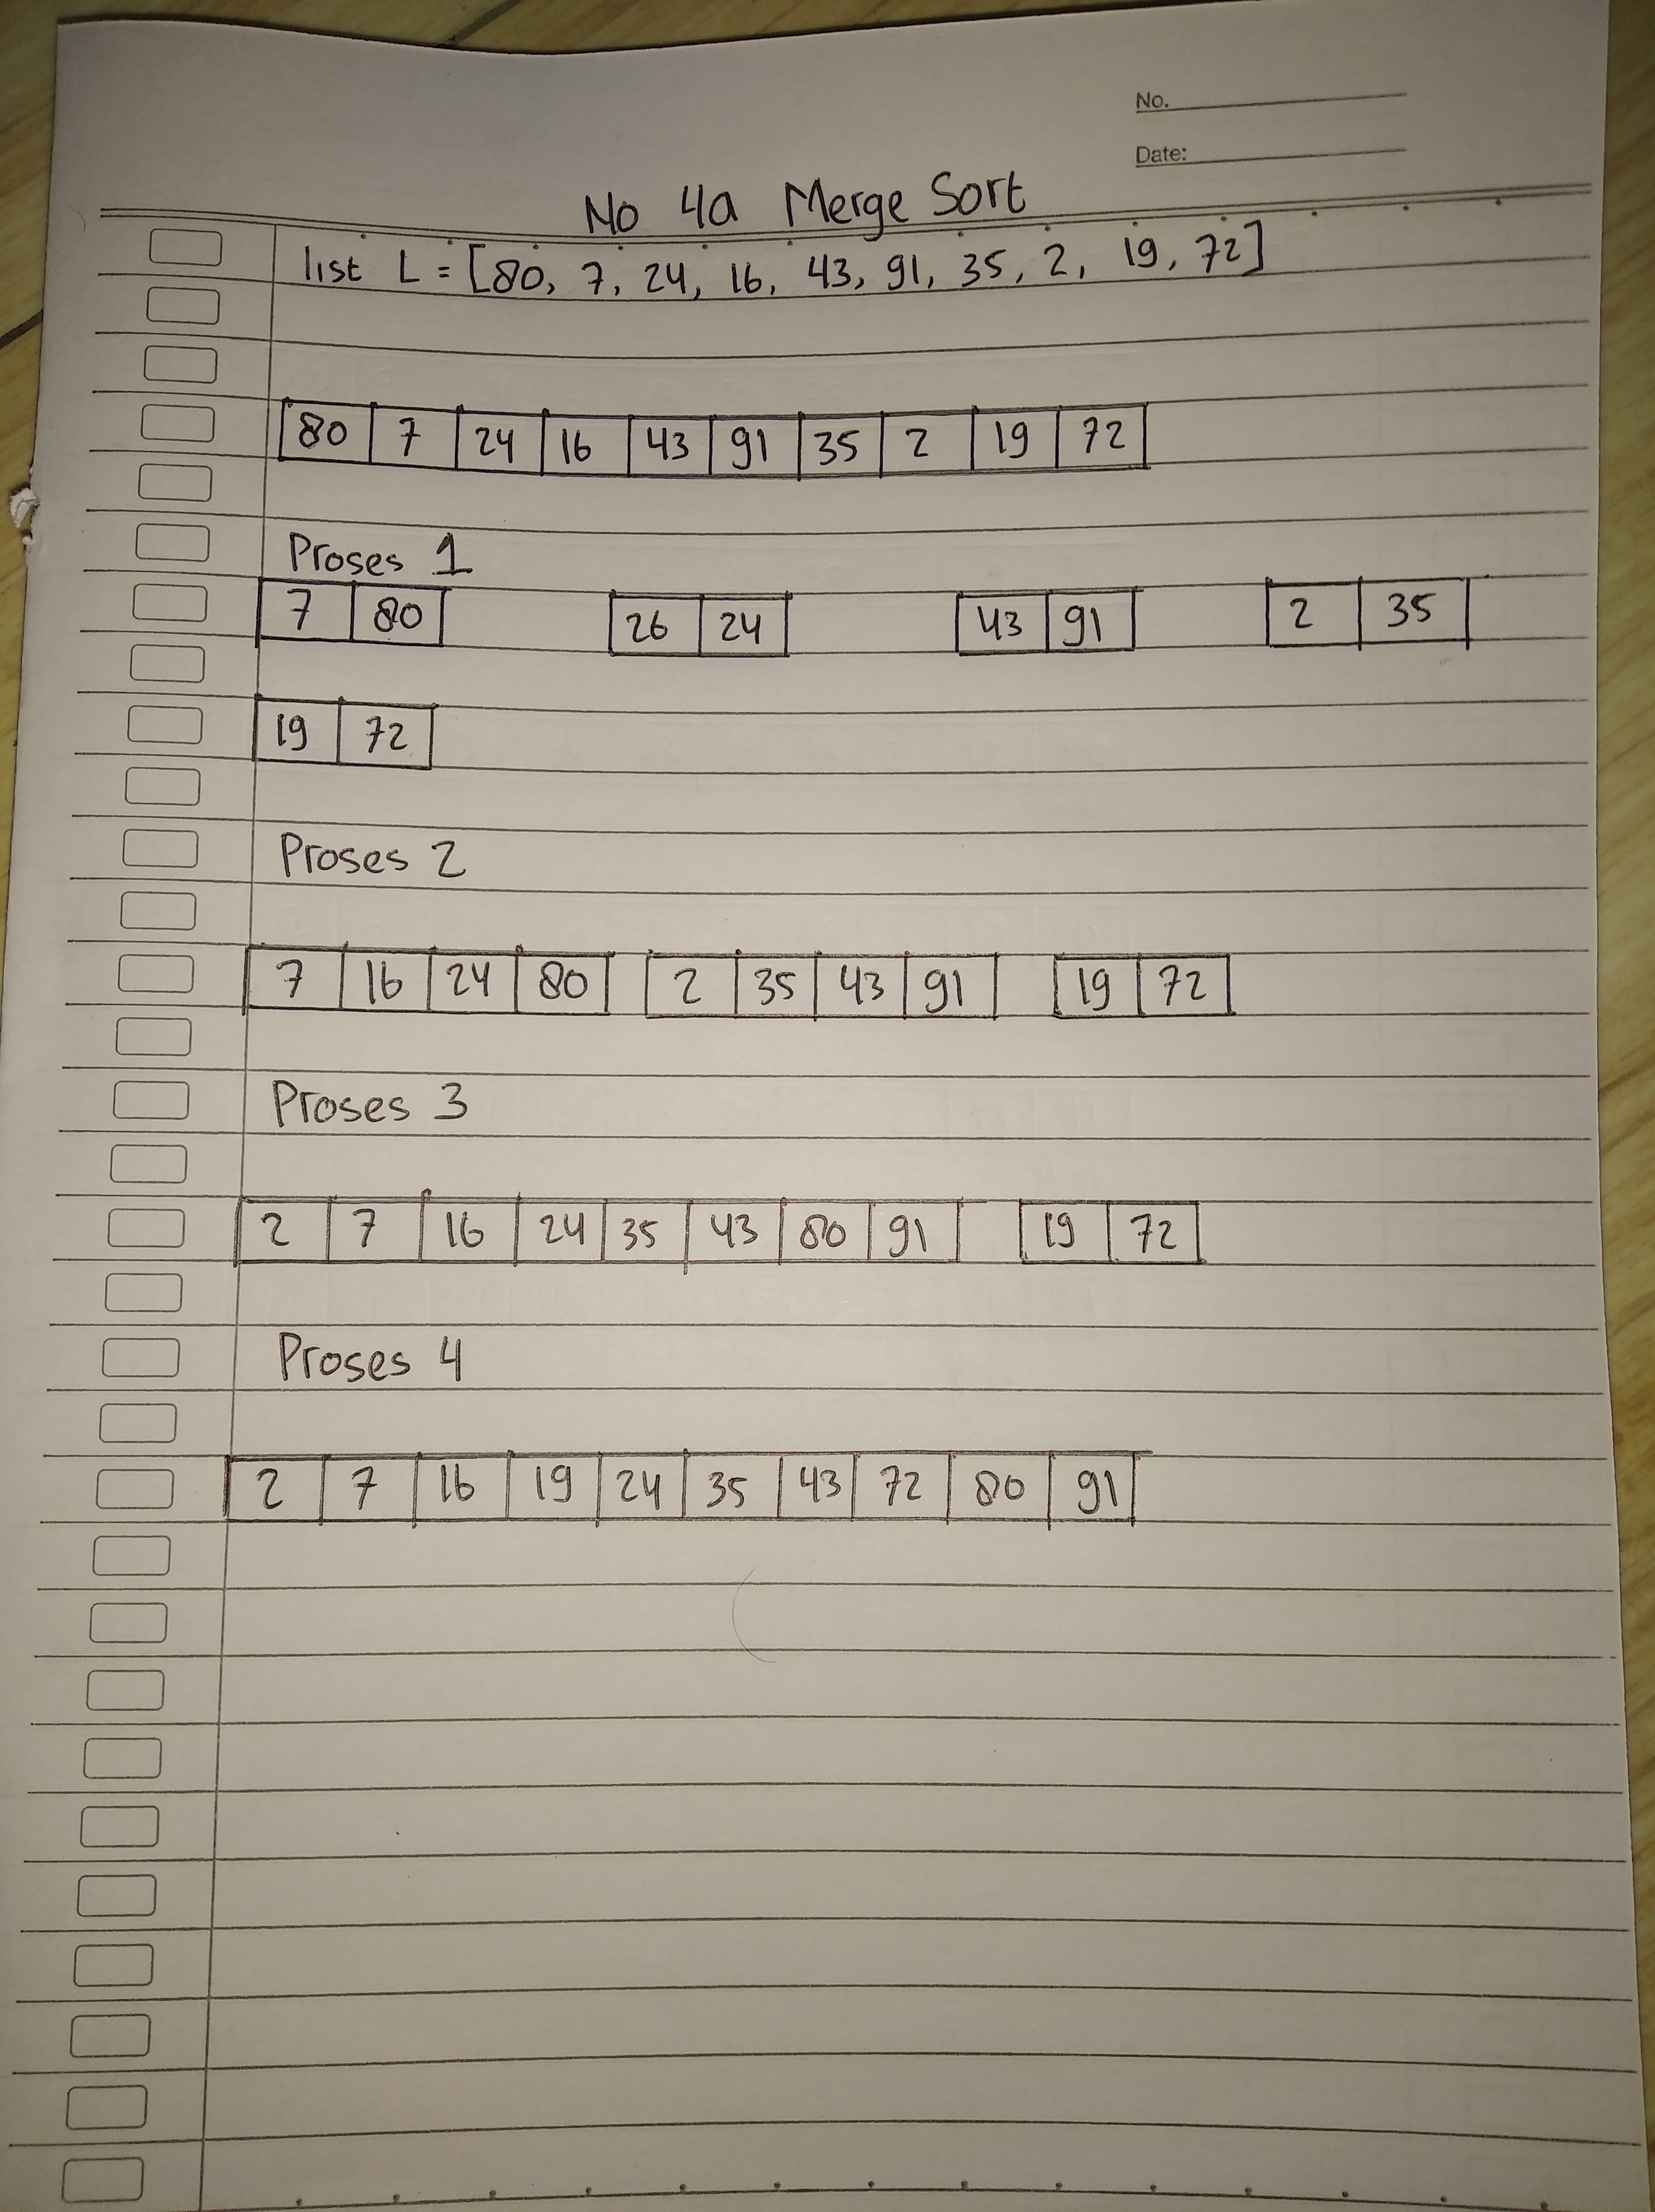 No.
Date:
No 4a Merge Sort
list L = [80, 7, 24, 16, 43, 91, 35, 2, 19, 72]
80 7 24 16 43 91 35 2 19 72
Proses 1
7 80 26 24 43 91 2 35
19 72
Proses 2
7 16 24 80 2 35 43 91 19 72
Proses 3
2 7 16 24 35 43 80 91 19 72
Proses 4
2 7 16 19 24 35 43 72 80 91